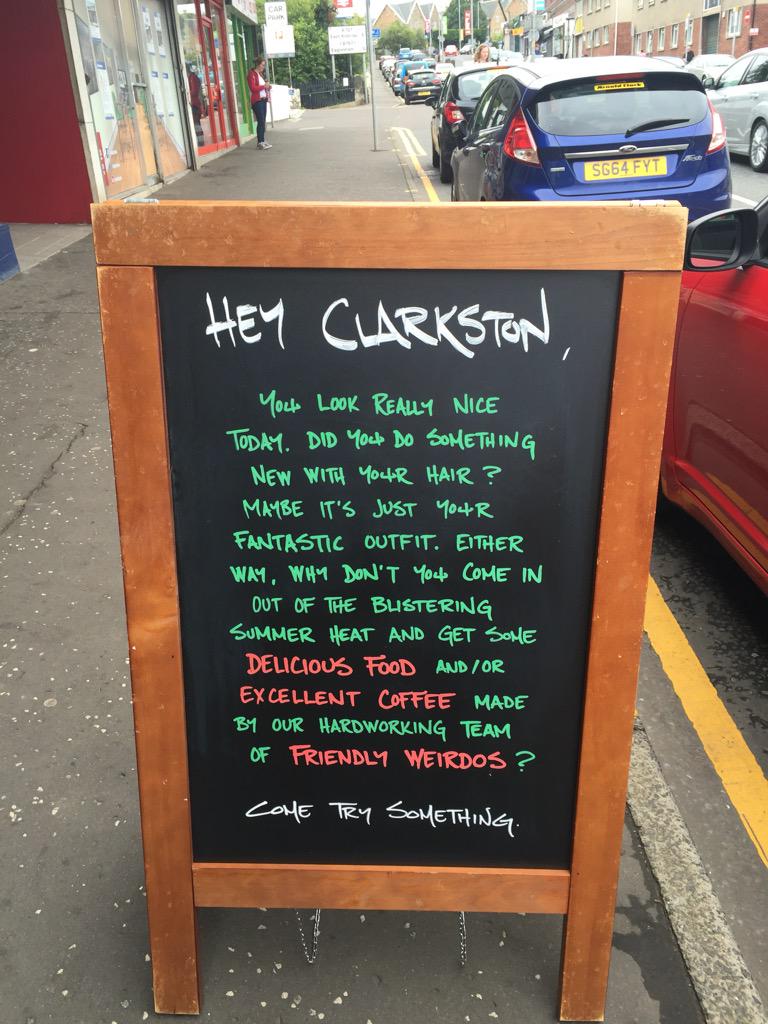 CAR
PARK
Arnold Clark
SG64 FYT
HEY CLARKSTON,
YOU LOOK REALLY NICE
TODAY. DID YOU DO SOMETHING
NEW WITH YOUR HAIR?
MAYBE IT'S JUST YOUR
FANTASTIC OUTFIT. EITHER
WAY, WHY DON'T YOU COME IN
OUT OF THE BLISTERING
SUMMER HEAT AND GET SOME
DELICIOUS FOOD AND/OR
EXCELLENT COFFEE MADE
BY OUR HARDWORKING TEAM
OF FRIENDLY WEIRDOS?
COME TRY SOMETHING.